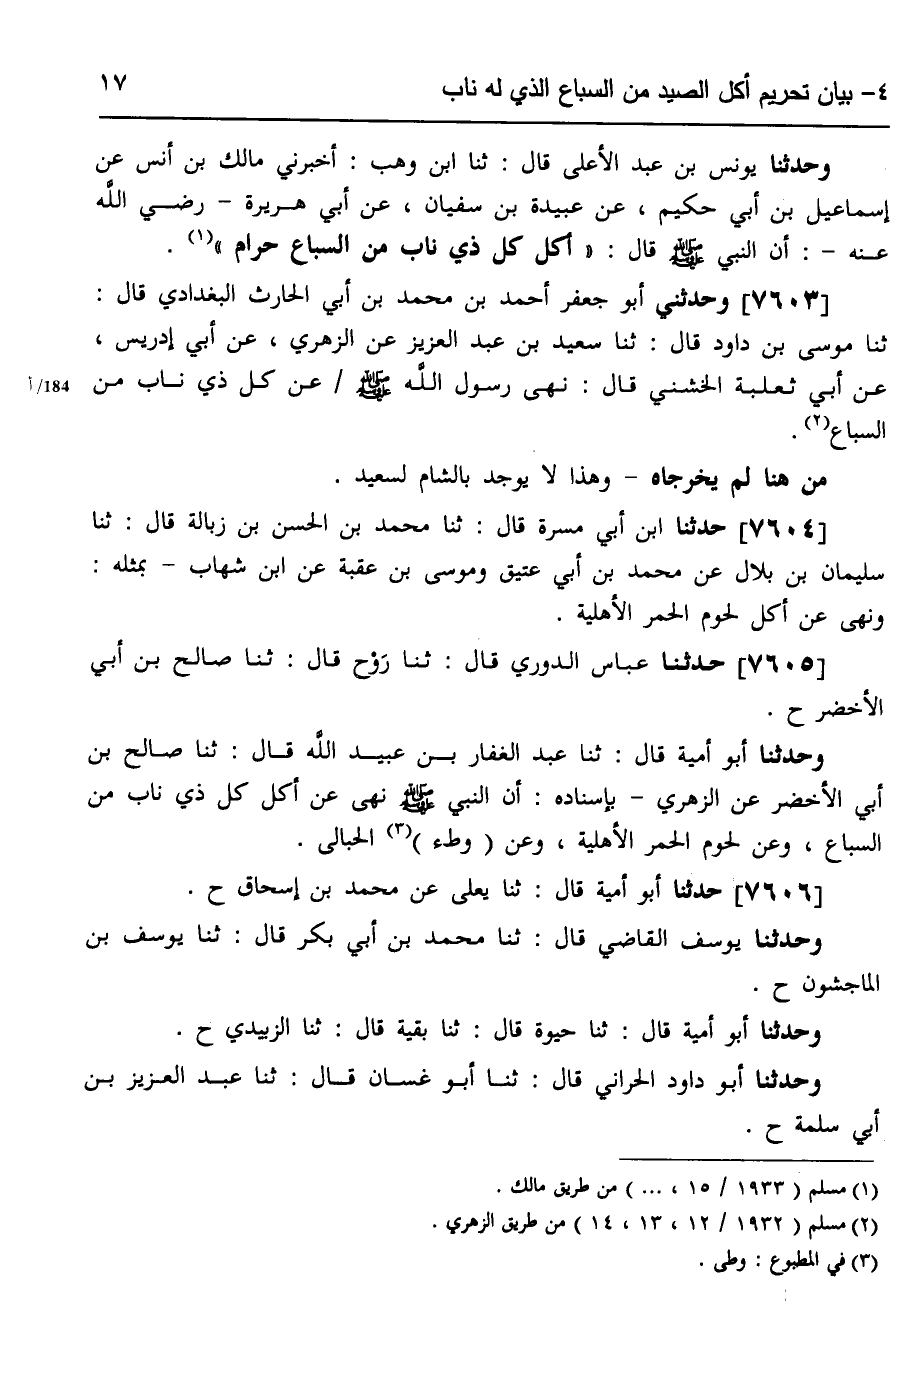 ٤- بيان تحريم أكل الصيد من السباع الذي له ناب ١٧
وحدثنا يونس بن عبد الأعلى قال : ثنا ابن وهب : أخبرني مالك بن أنس عن
إسماعيل بن أبي حكيم ، عن عبيدة بن سفيان ، عن أبي هريرة - رضي اللَّه
عنه - : أن النبي ﷺ قال : « أكل كل ذي ناب من السباع حرام »(١) .
[٧٦٠٣] وحدثني أبو جعفر أحمد بن محمد بن أبي الحارث البغدادي قال :
ثنا موسى بن داود قال : ثنا سعيد بن عبد العزيز عن الزهري ، عن أبي إدريس ،
عن أبي ثعلبة الخشني قال : نهى رسول اللَّه ﷺ / عن كل ذي ناب من 184/أ
السباع(٢) .
من هنا لم يخرجاه - وهذا لا يوجد بالشام لسعيد .
[٧٦٠٤] حدثنا ابن أبي مسرة قال : ثنا محمد بن الحسن بن زبالة قال : ثنا
سليمان بن بلال عن محمد بن أبي عتيق وموسى بن عقبة عن ابن شهاب - بمثله :
ونهى عن أكل لحوم الحمر الأهلية .
[٧٦٠٥] حدثنا عباس الدوري قال : ثنا رَوْح قال : ثنا صالح بن أبي
الأخضر ح .
وحدثنا أبو أمية قال : ثنا عبد الغفار بن عبيد اللَّه قال : ثنا صالح بن
أبي الأخضر عن الزهري - بإسناده : أن النبي ﷺ نهى عن أكل كل ذي ناب من
السباع ، وعن لحوم الحمر الأهلية ، وعن ( وطء )(٣) الحبالى .
[٧٦٠٦] حدثنا أبو أمية قال : ثنا يعلى عن محمد بن إسحاق ح .
وحدثنا يوسف القاضي قال : ثنا محمد بن أبي بكر قال : ثنا يوسف بن
الماجشون ح .
وحدثنا أبو أمية قال : ثنا حيوة قال : ثنا بقية قال : ثنا الزبيدي ح .
وحدثنا أبو داود الحراني قال : ثنا أبو غسان قال : ثنا عبد العزيز بن
أبي سلمة ح .
(١) مسلم ( ١٩٣٣ / ١٥ ، ... ) من طريق مالك .
(٢) مسلم ( ١٩٣٢ / ١٢ ، ١٣ ، ١٤ ) من طريق الزهري .
(٣) في المطبوع : وطى .